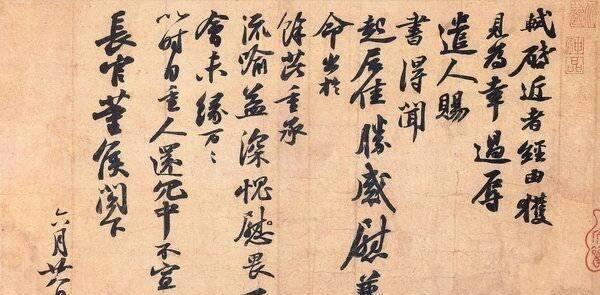 軾啟近者經由獲
見為幸過辱
遣人賜
書得聞
起居佳勝感慰兼
命出於
餘芘重承
流喻益深愧慰畏
會未緣万々
以時自重人還冗中不宣
長官董侯閣下
六月廿八日